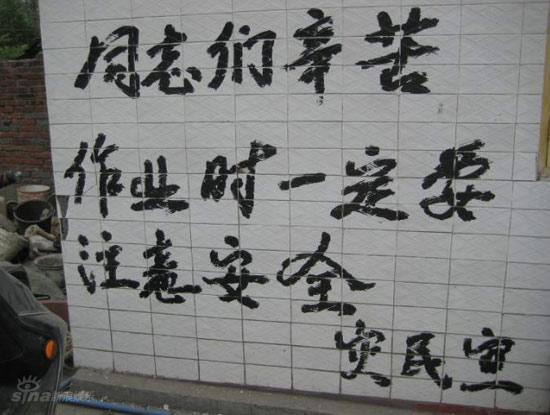 同志们辛苦
作业时一定要
注意安全
灾民宣
sina 新浪娱乐